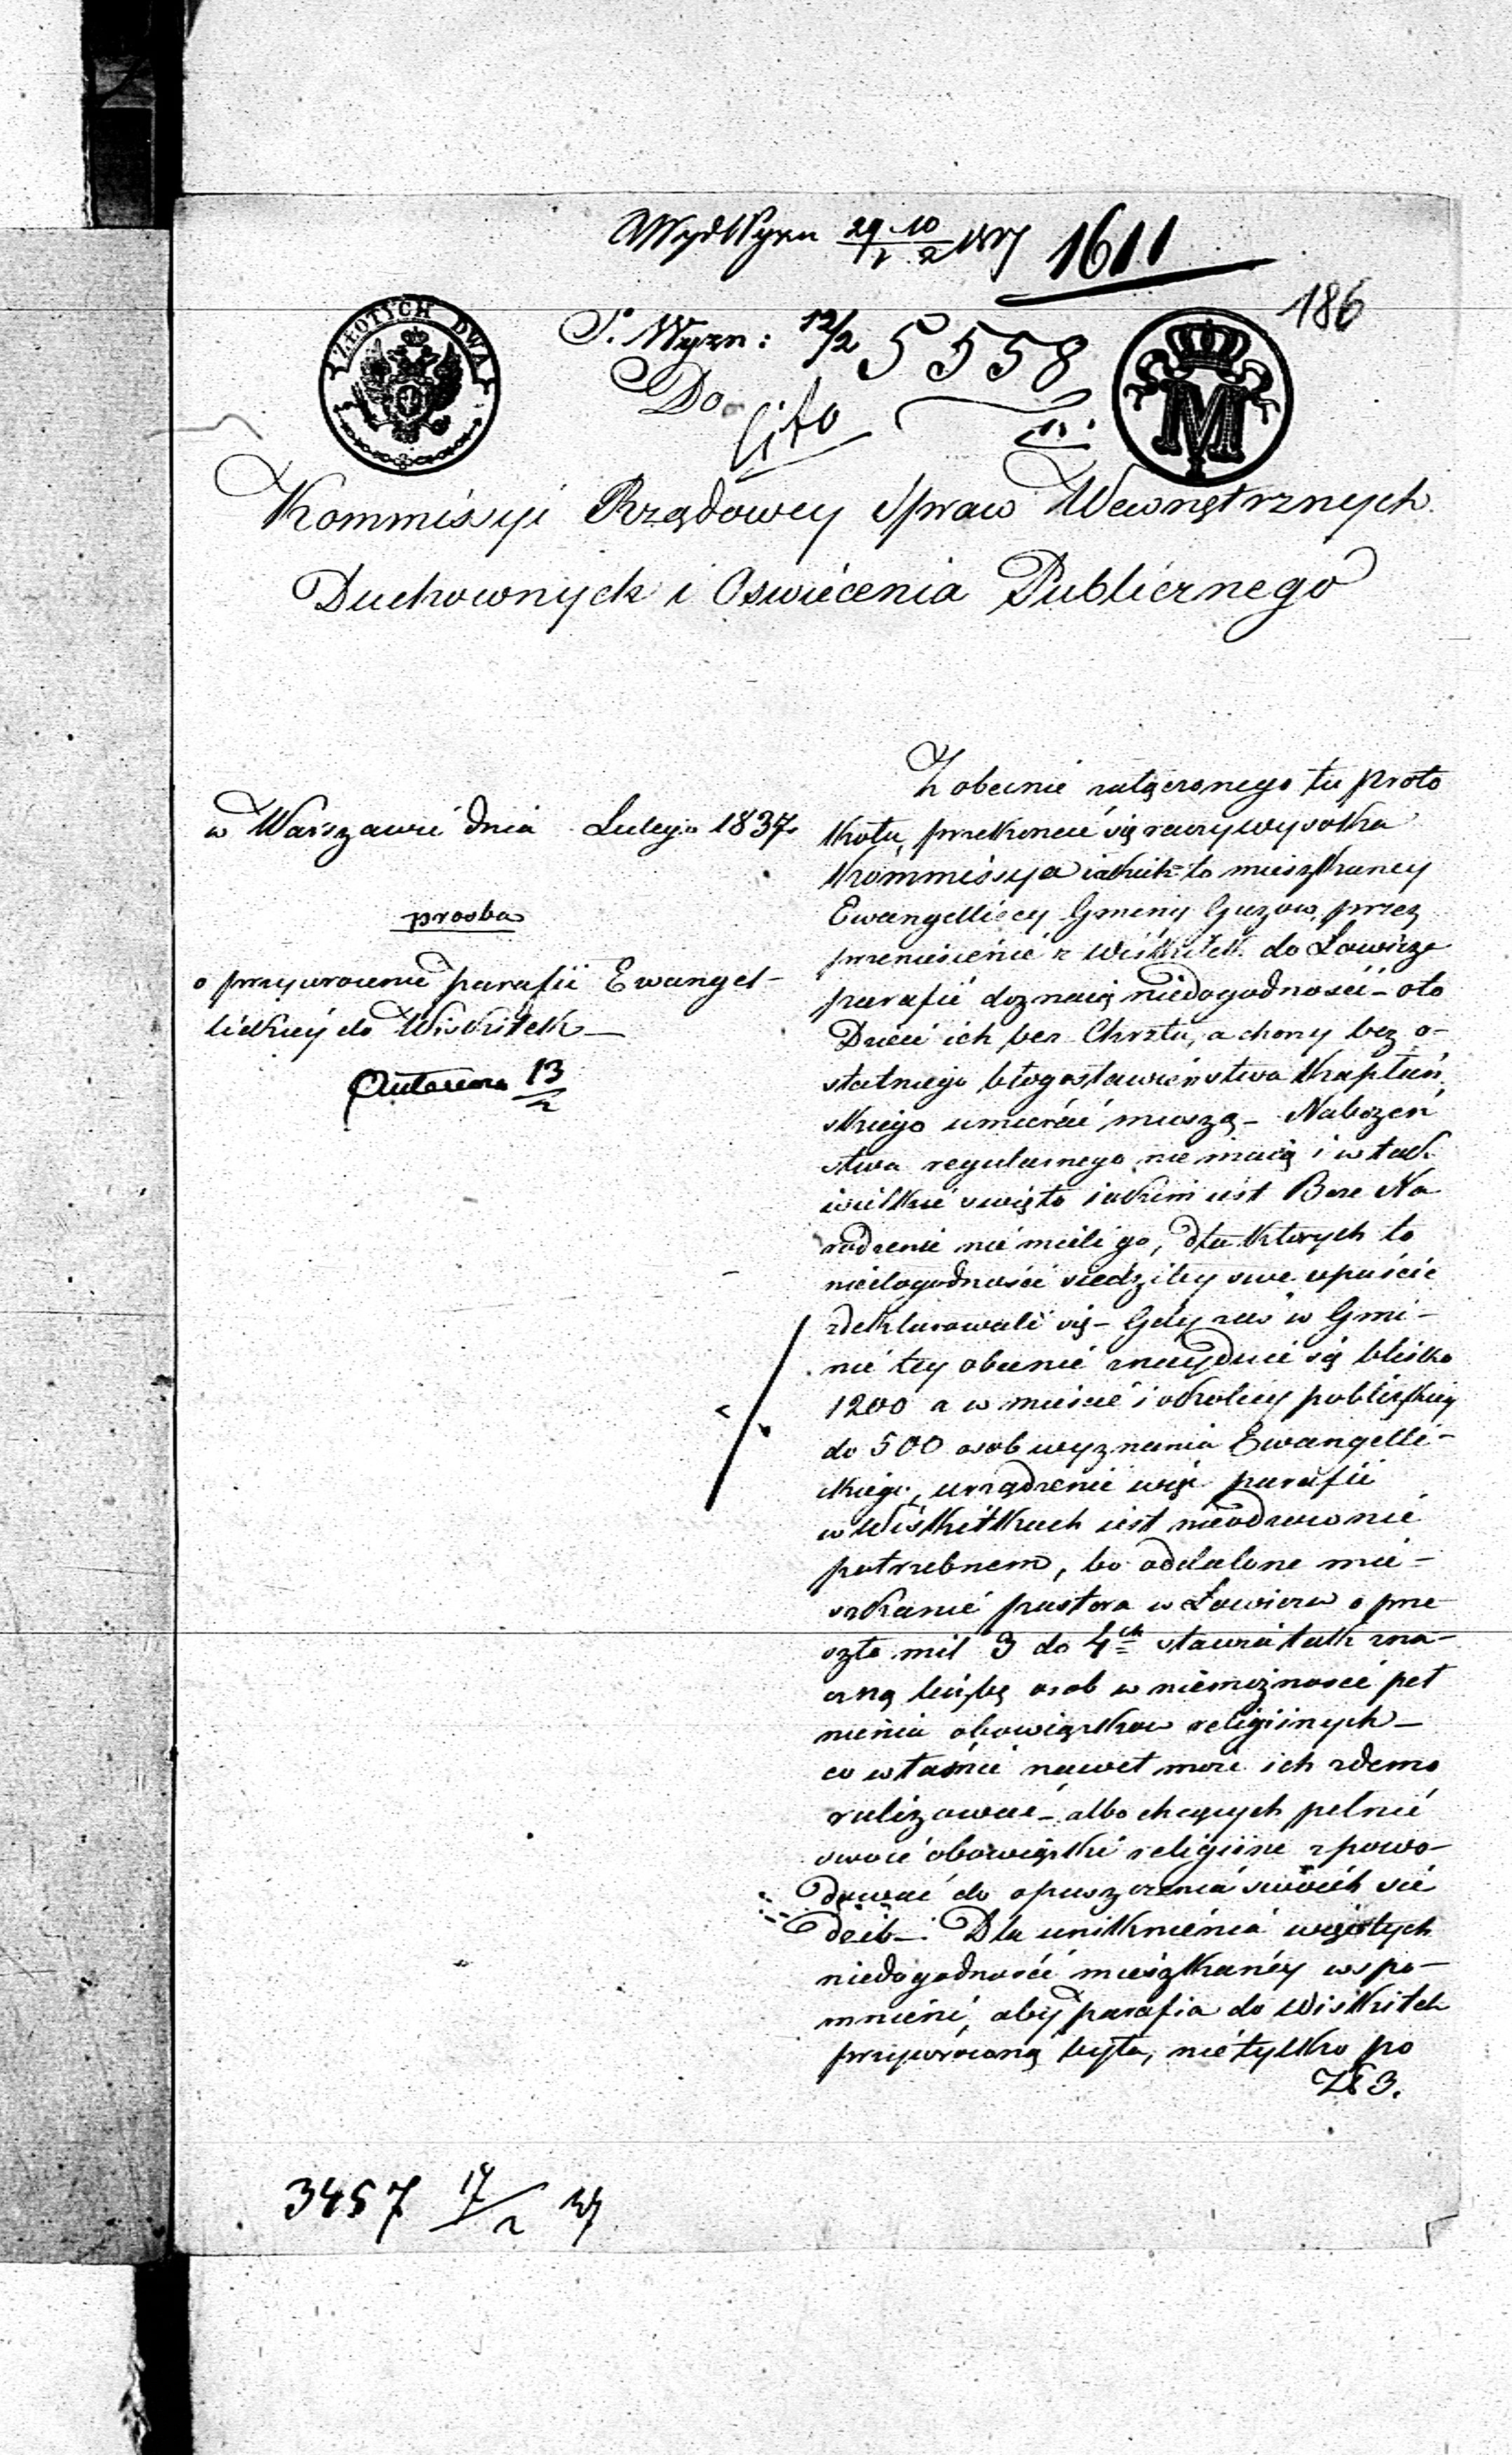 1611
186
ZŁOTYCH DWA
S. Wyzn: 12/2 5558
Do
Cito
M
Kommissyi Rządowey Spraw Wewnętrznych
Duchownych i Oswiecenia Publicznego
w Warszawie dnia Lutego 1837.
prosba
o przywrocenie parafii Ewangel-
lickiey do Wiskitek—
13/2
Z obecnie załączonego tu proto
kołu, przekonać się raczy wysoka
Kommissya iakich to mieszkancy
Ewangelliccy Gminy Guzow, przez
przeniesienie z Wiskitek do Łowicza
parafii doznaią niedogodnosci – oto
Dzieci ich bez Chrztu, a chorzy bez o-
statniego błogosławienstwa Kapłań
skiego umierać muszą – Nabożeń
stwa regularnego nie maią i w tak
wielkie swięto iakim iest Boże Na
rodzenie nie mieli go, dla ktorych to
niedogodnosci siedziby swe opuścić
zdeklarowali się – Gdy zas w Gmi-
nie tey obecnie znayduie się blisko
1200 a w miescie i okolicy pobliskiey
do 500 osob wyznania Ewangelli-
ckiego, urządzenie więc parafii
w Wiskitkach iest nieodzownie
potrzebnem, bo oddalone mie-
szkanie pastora w Łowiczu o prze
szło mil 3 do 4ch stawia tak zna-
czną liczbę osob w niemożnosci peł
nienia obowiązkow religiinych –
co własnie nawet może ich zdemo
ralizować – albo chcących pełnić
swoie obowiązki religiine spowo-
dować do opuszczenia swoich sie
dzib – Dla uniknienia więc tych
niedogodności mieszkańcy wspo-
mnieni, aby parafia do Wiskitek
przywroconą była, nie tylko po
Zł 3.
3457 17/2 37